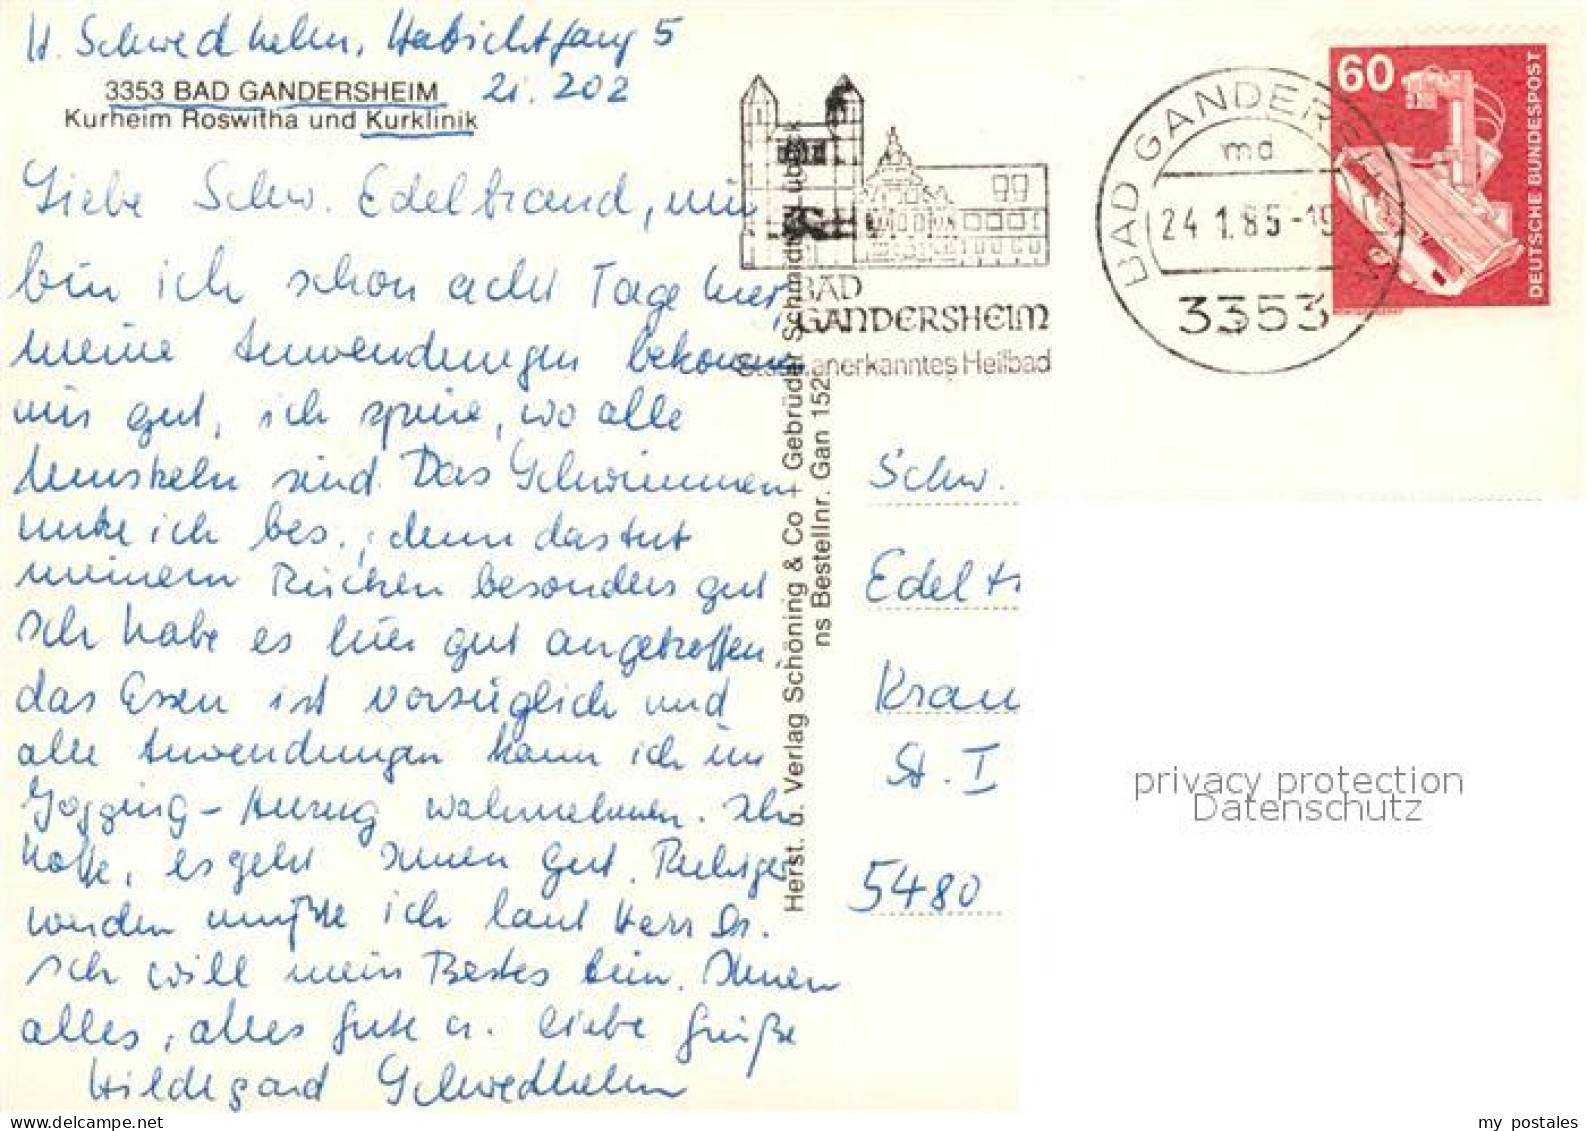 H. Schwedhelm, Habichtfang 5
3353 BAD GANDERSHEIM Zi. 202
Kurheim Roswitha und Kurklinik
Liebe Schw. Edeltraud, nun
bin ich schon acht Tage hier,
meine Anwendungen bekommen
mir gut, ich spüre, wo alle
Muskeln sind. Das Schwimmen
nutze ich bes., denn das tut
meinem Rücken besonders gut
Ich habe es hier gut angetroffen,
das Essen ist vorzüglich und
alle Anwendungen kann ich im
Jogging-Anzug wahrnehmen. Ich
hoffe, es geht Ihnen gut. Ruhiger
werden müßte ich laut Herr Dr.
Ich will mein Bestes tun. Ihnen
alles, alles Gute u. liebe Grüße
Hildegard Schwedhelm
Herst. u. Verlag Schöning & Co + Gebrüder Schmidt, Lübeck
ns Bestellnr. Gan 152
BAD
GANDERSHEIM
Staatl. anerkanntes Heilbad
BAD GANDERSHEIM
md
24.1.85-19
3353
60
DEUTSCHE BUNDESPOST
Schw.
Edeltr
Kran
St. I
5480
privacy protection
Datenschutz
my postales